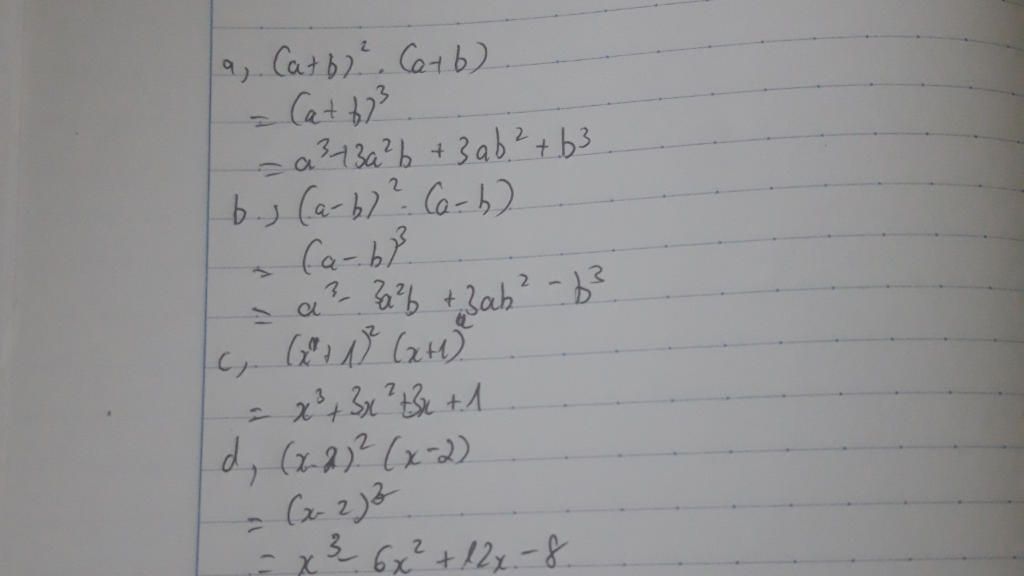 a, (a+b)² . (a+b)
= (a+b)³
= a³+3a²b + 3ab² + b³
b, (a-b)² . (a-b)
= (a-b)³
= a³ - 3a²b + 3ab² - b³
c, (x+1)² (x+1)
= x³ + 3x² + 3x + 1
d, (x-2)² (x-2)
= (x-2)³
= x³ - 6x² + 12x - 8